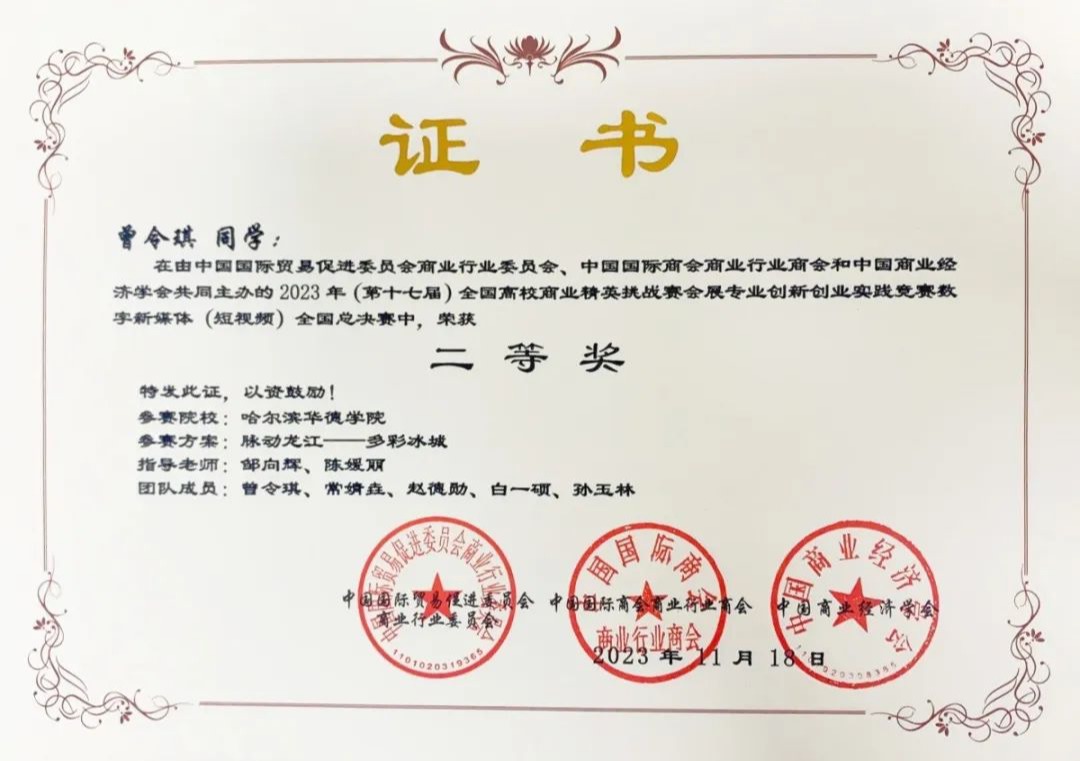 证 书
曾令琪 同学：
在由中国国际贸易促进委员会商业行业委员会、中国国际商会商业行业商会和中国商业经
济学会共同主办的 2023 年（第十七届）全国高校商业精英挑战赛会展专业创新创业实践竞赛数
字新媒体（短视频）全国总决赛中，荣获
二 等 奖
特发此证，以资鼓励！
参赛院校：哈尔滨华德学院
参赛方案：脉动龙江——多彩冰城
指导老师：邹向辉、陈媛丽
团队成员：曾令琪、常婧垚、赵德勋、白一硕、孙玉林
中国国际贸易促进委员会 中国国际商会商业行业商会 中国商业经济学会
商业行业委员会
2023 年 11 月 18 日
中国国际贸易促进委员会商业行业委员会
1101020319365
中国国际商会
商业行业商会
中国商业经济学会